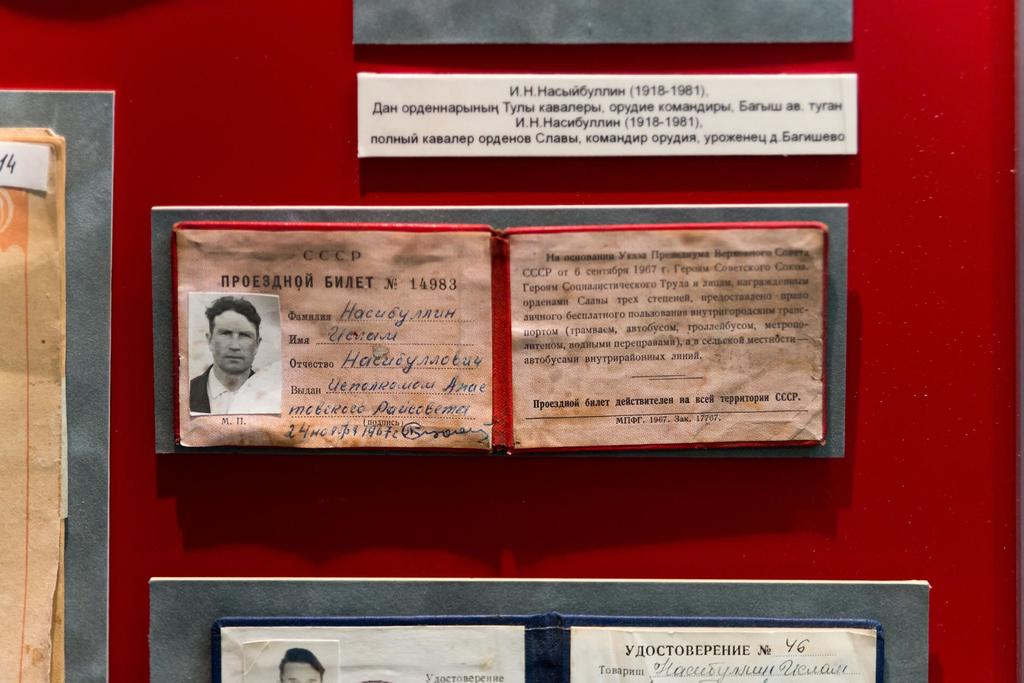 14
И.Н.Насыйбуллин (1918-1981),
Дан орденнарының Тулы кавалеры, орудие командиры, Багыш ав. туган
И.Н.Насибуллин (1918-1981),
полный кавалер орденов Славы, командир орудия, уроженец д.Багишево
СССР
ПРОЕЗДНОЙ БИЛЕТ № 14983
Фамилия Насибуллин
Имя Ислам
Отчество Насибуллович
Выдан Исполкомом Апас
товского Райсовета
М. П. (подпись)
24 ноября 1967 г.
На основании Указа Президиума Верховного Совета
СССР от 6 сентября 1967 г. Героям Советского Союза,
Героям Социалистического Труда и лицам, награжденным
орденами Славы трех степеней, предоставлено право
личного бесплатного пользования внутригородским транс-
портом (трамваем, автобусом, троллейбусом, метропо-
литеном, водными переправами), а в сельской местности—
автобусами внутрирайонных линий.
Проездной билет действителен на всей территории СССР.
МПФГ. 1967. Зак. 17767.
Удостоверение
УДОСТОВЕРЕНИЕ № 46
Товарищ Насибуллин Ислам